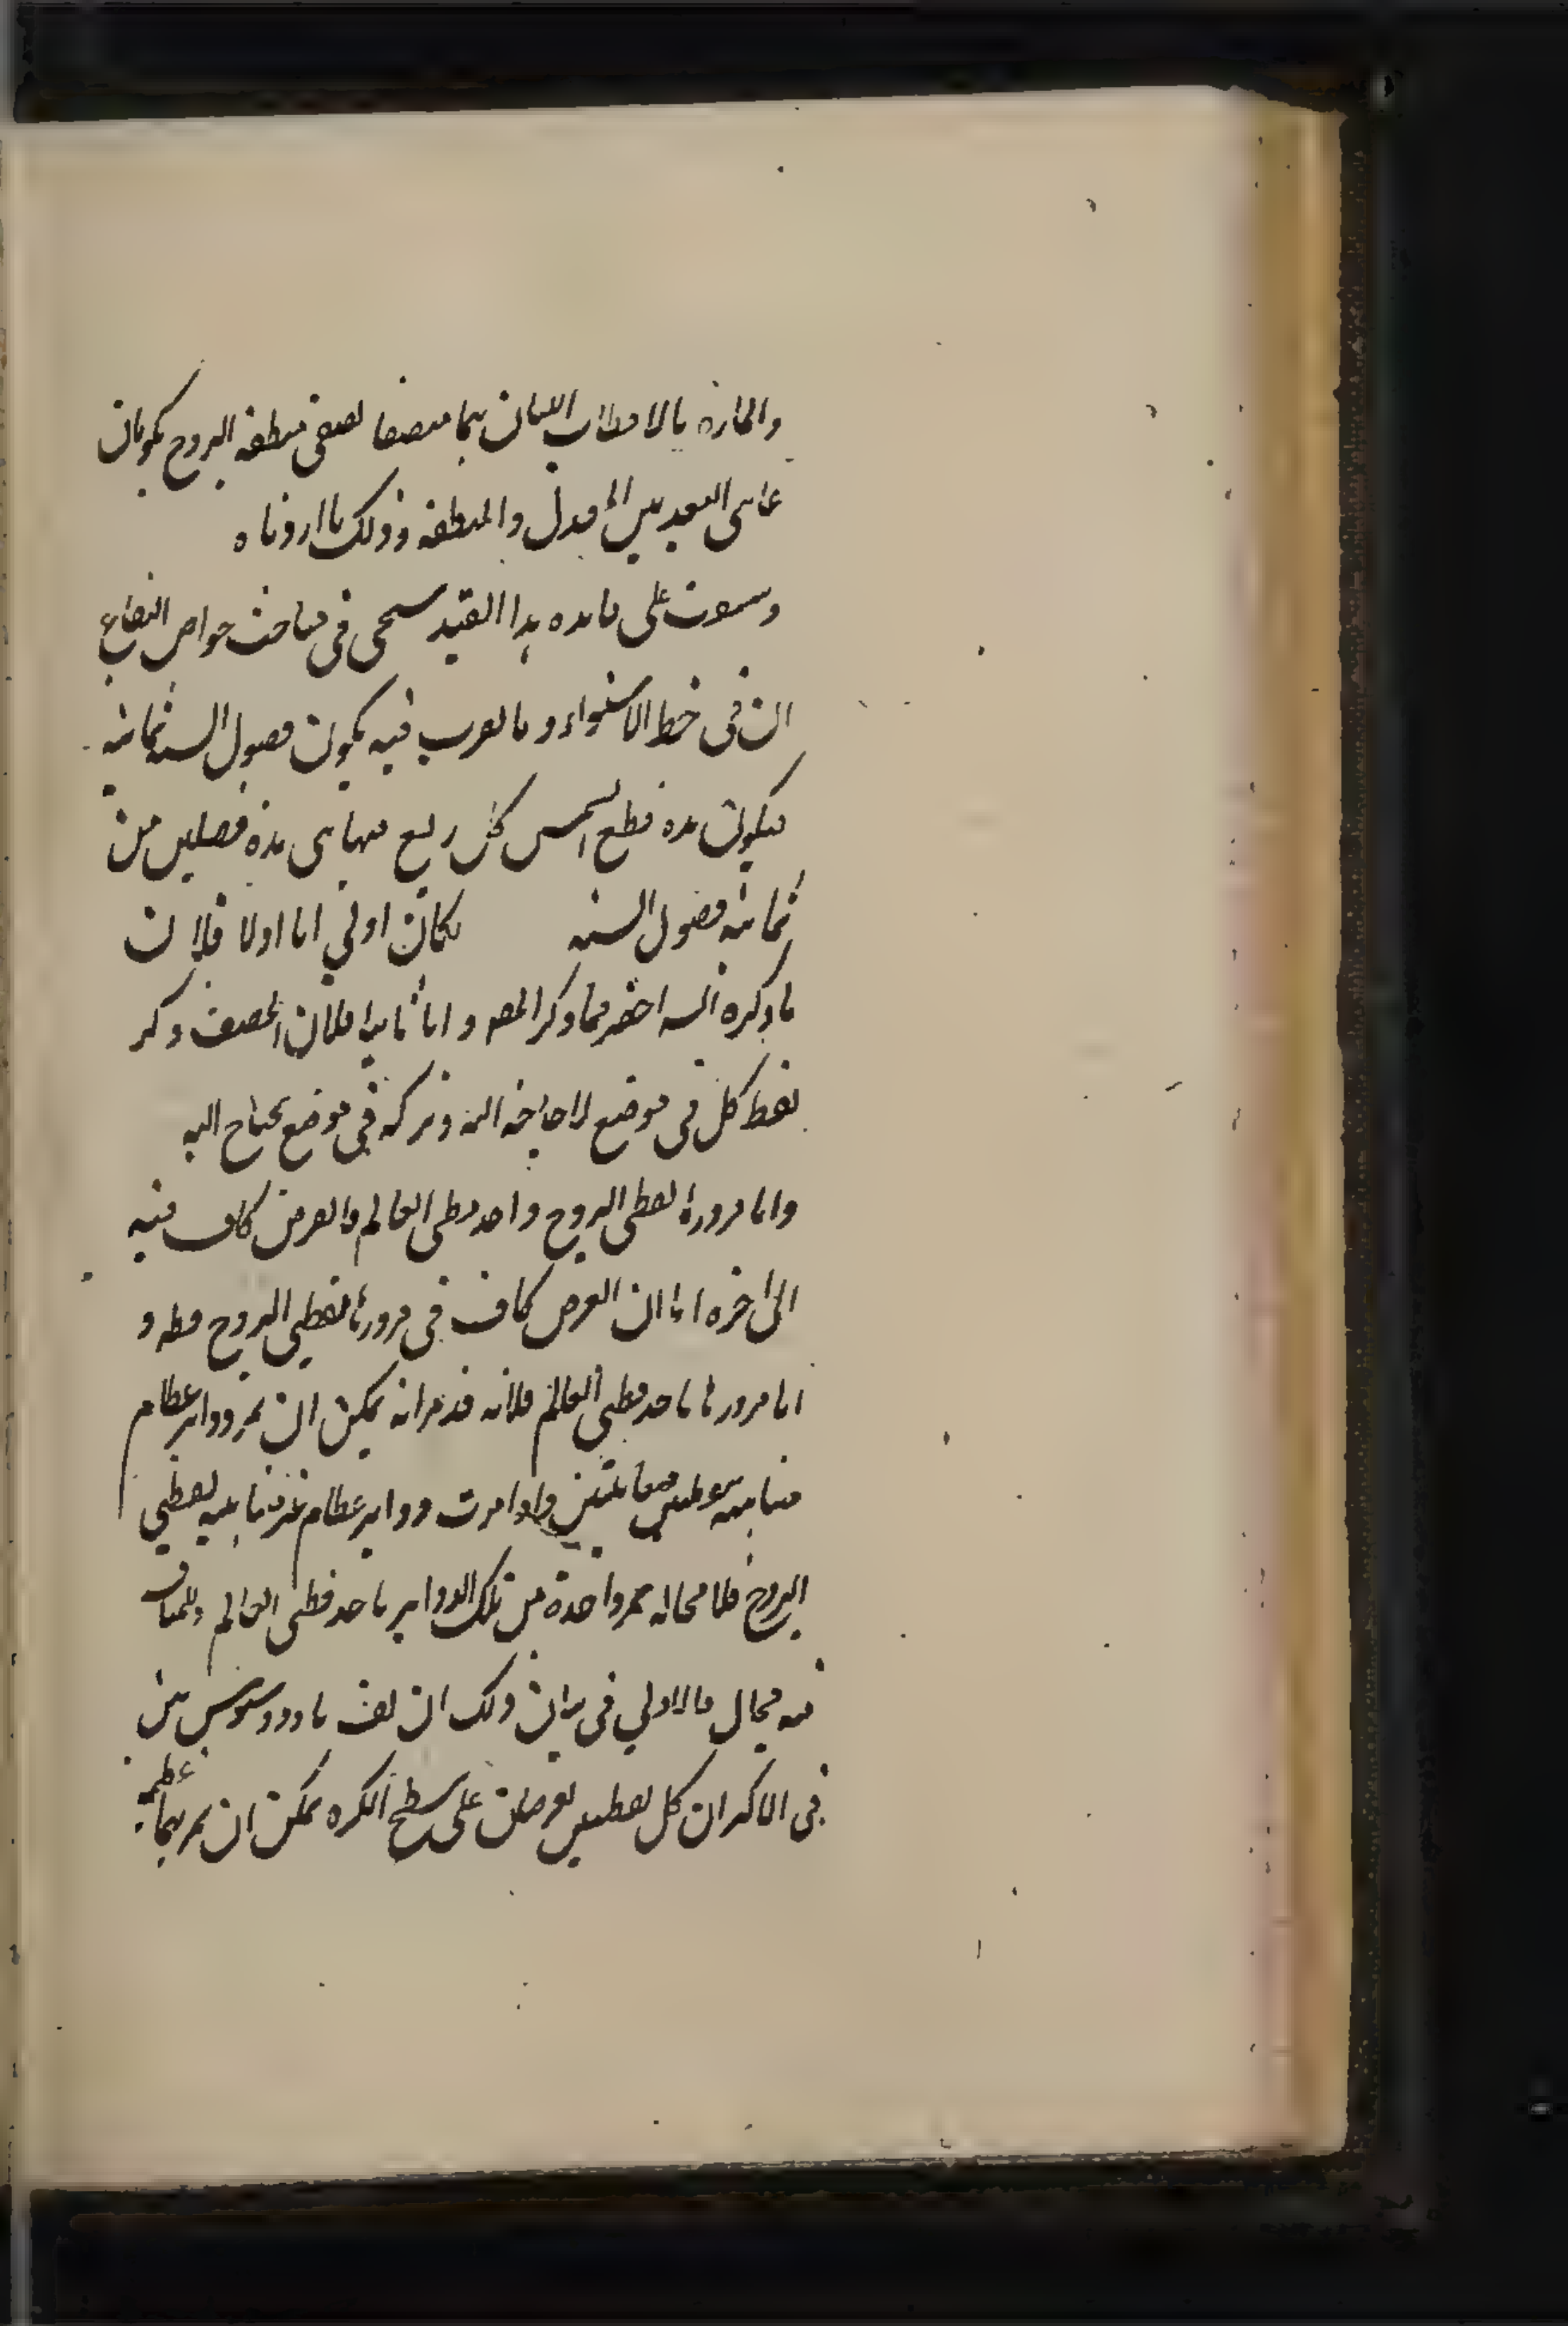 والمارة بالاقطاب اللتان بهما منتصفا نصفي منطقة البروج يكونان
غايتي البعد بين المعدل والمنطقة وذلك ما اردناه
وستقف على فائدة هذا القيد سيجئ في مباحث خواص البقاع
ان في خط الاستواء وما يقرب فيه يكون فصول السنة ثمانية
فيكون مدة قطع الشمس كل ربع منها هي مدة فصلين من
ثمانية فصول السنة لكان اولى اما اولا فلان
ما ذكره السيد اخصر مما ذكر المصر واما ثانيا فلان المصنف ذكر
لفظ كل في موضع لا حاجة اليه وتركه في موضع يحتاج اليه
واما مرورها بقطبي البروج واحد قطبي العالم فالعرض كاف فيه
الى اخره اما ان العرض كاف في مرورها بقطبي البروج فظه و
اما مرورها باحد قطبي العالم فلانه قد مر انه يمكن ان يمر دواير عظام
غير متناهية بنقطتين متقابلتين واذا مرت دواير عظام غير متناهية بقطبي
البروج فلا محالة يمر واحدة من تلك الدواير باحد قطبي العالم وللمناقشة
فيه مجال فالاولى في بيان ذلك ان يقال ثاودوسيوس بين
في الاكر ان كل نقطتين تفرضان على سطح الكرة يمكن ان يمر بهما عظيمة